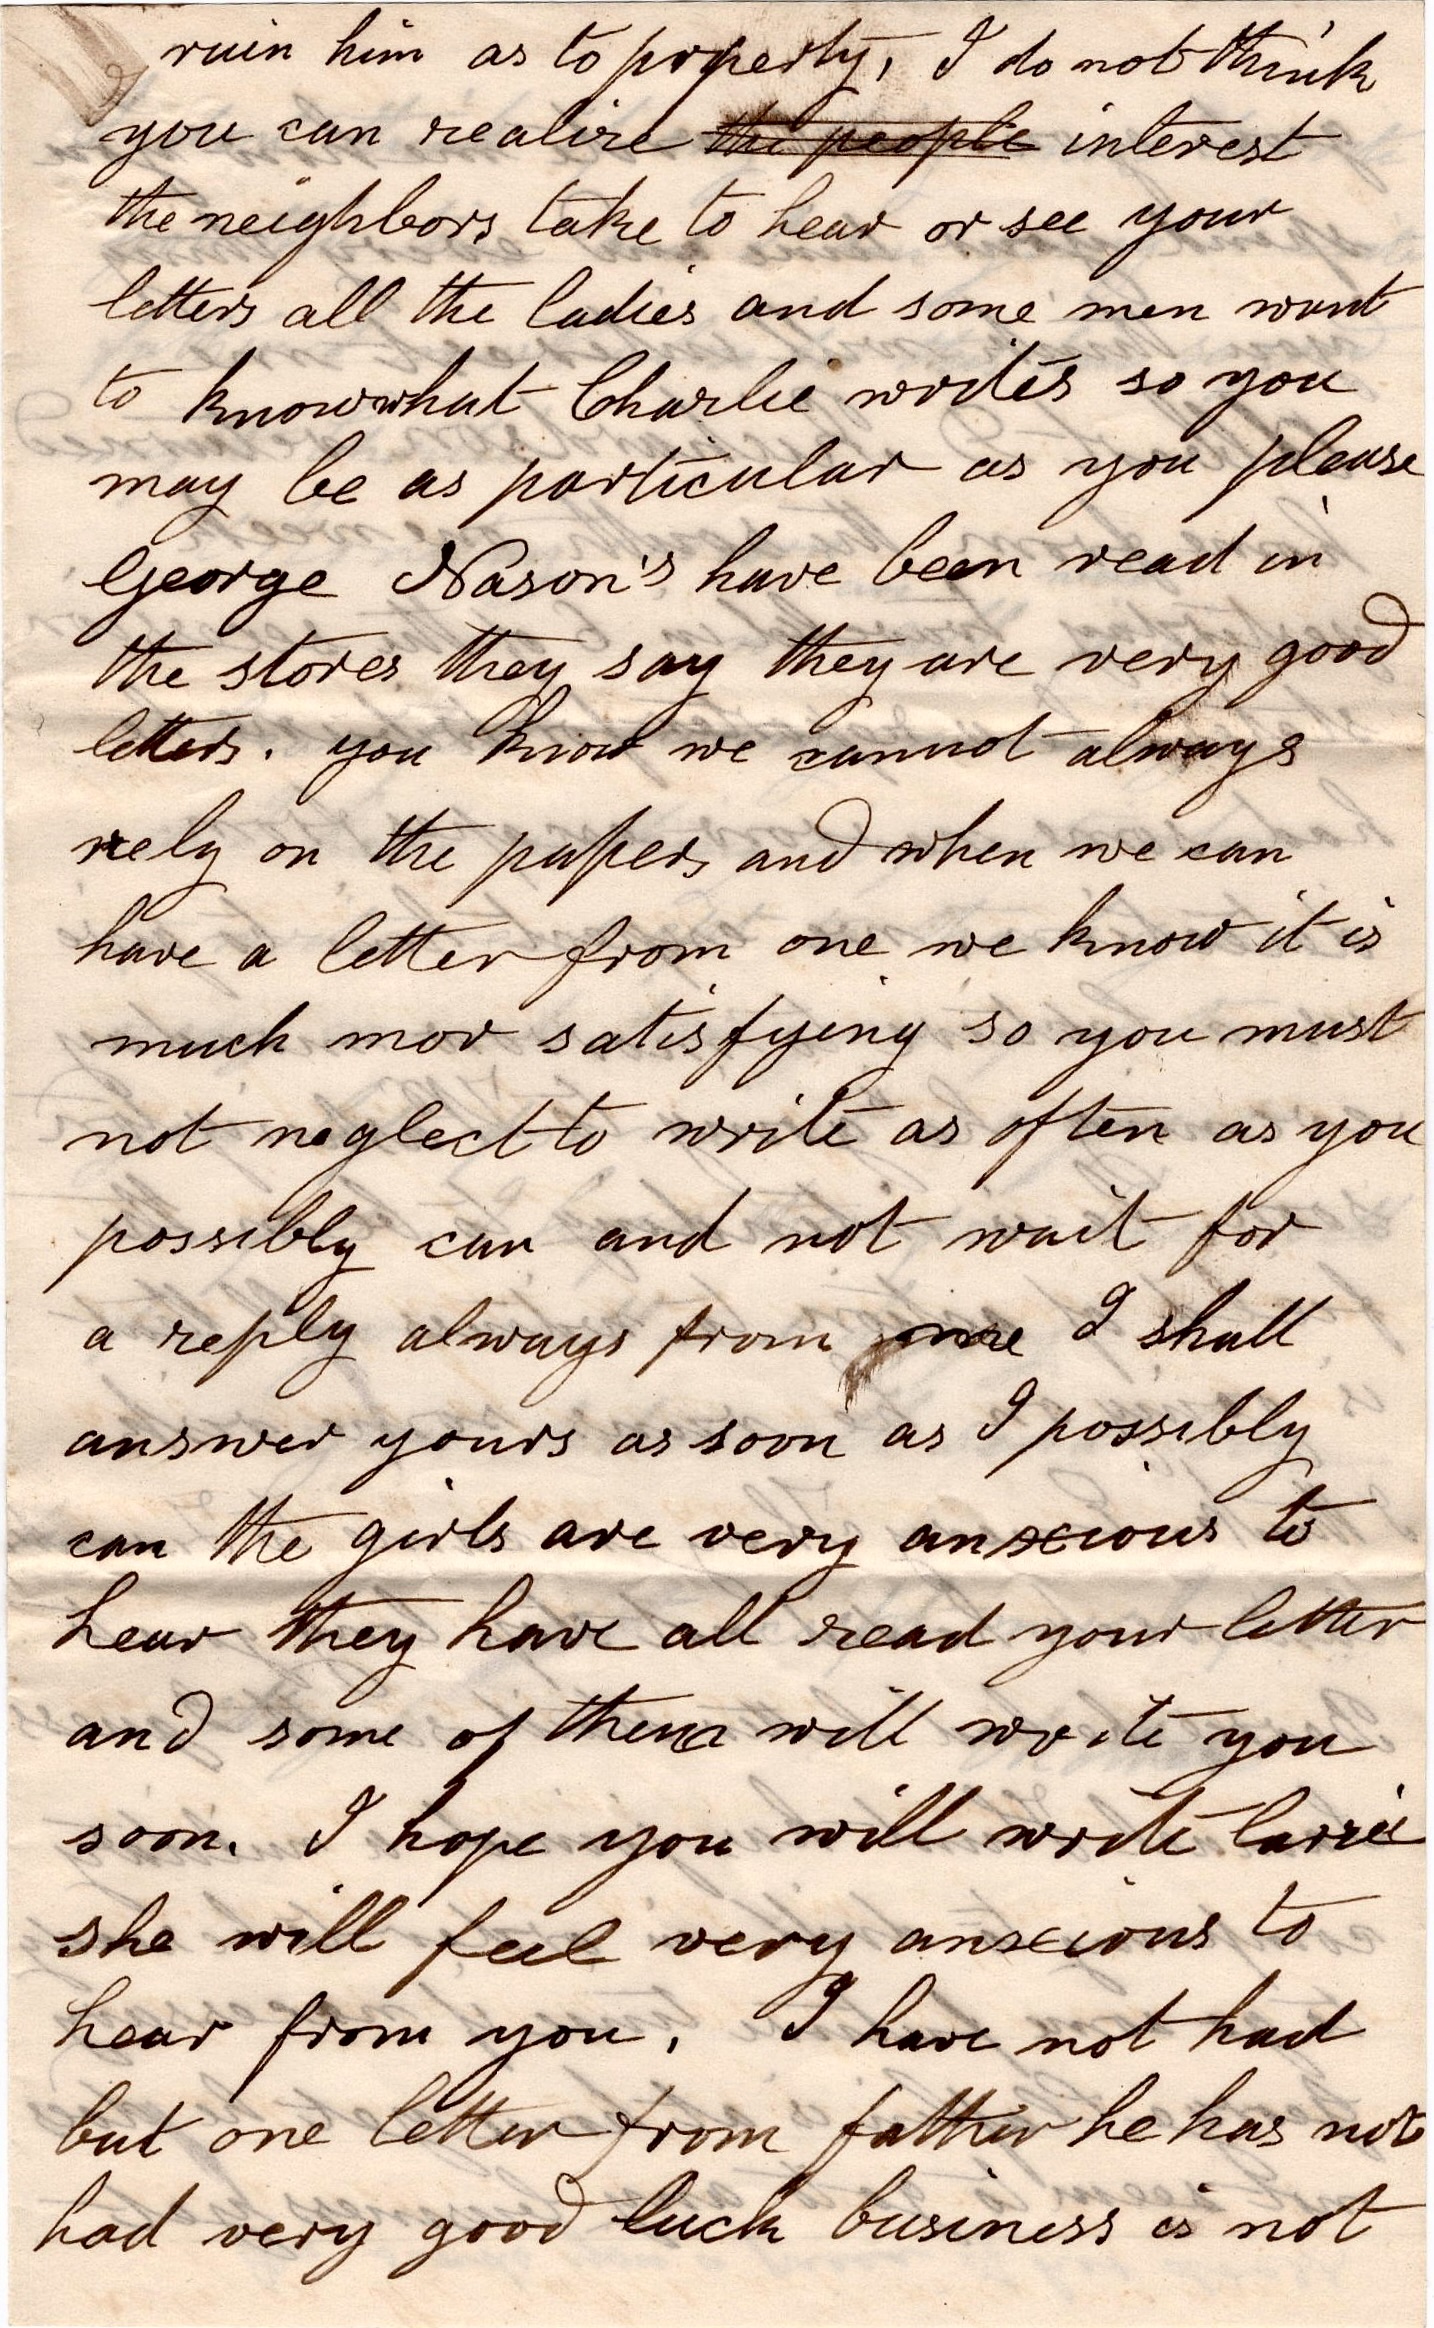 ruin him as to property, I do not think
you can realize the people interest
the neighbors take to hear or see your
letters all the ladies and some men want
to know what Charlie writes so you
may be as particular as you please
George Nason's have been read in
the stores they say they are very good
letters. you know we cannot always
rely on the papers and when we can
have a letter from one we know it is
much mor satisfying so you must
not neglect to write as often as you
possibly can and not wait for
a reply always from me I shall
answer yours as soon as I possibly
can the girls are very anxious to
hear they have all read your letter
and some of them will write you
soon. I hope you will write Carrie
she will feel very anxious to
hear from you. I have not had
but one letter from father he has not
had very good luck business is not